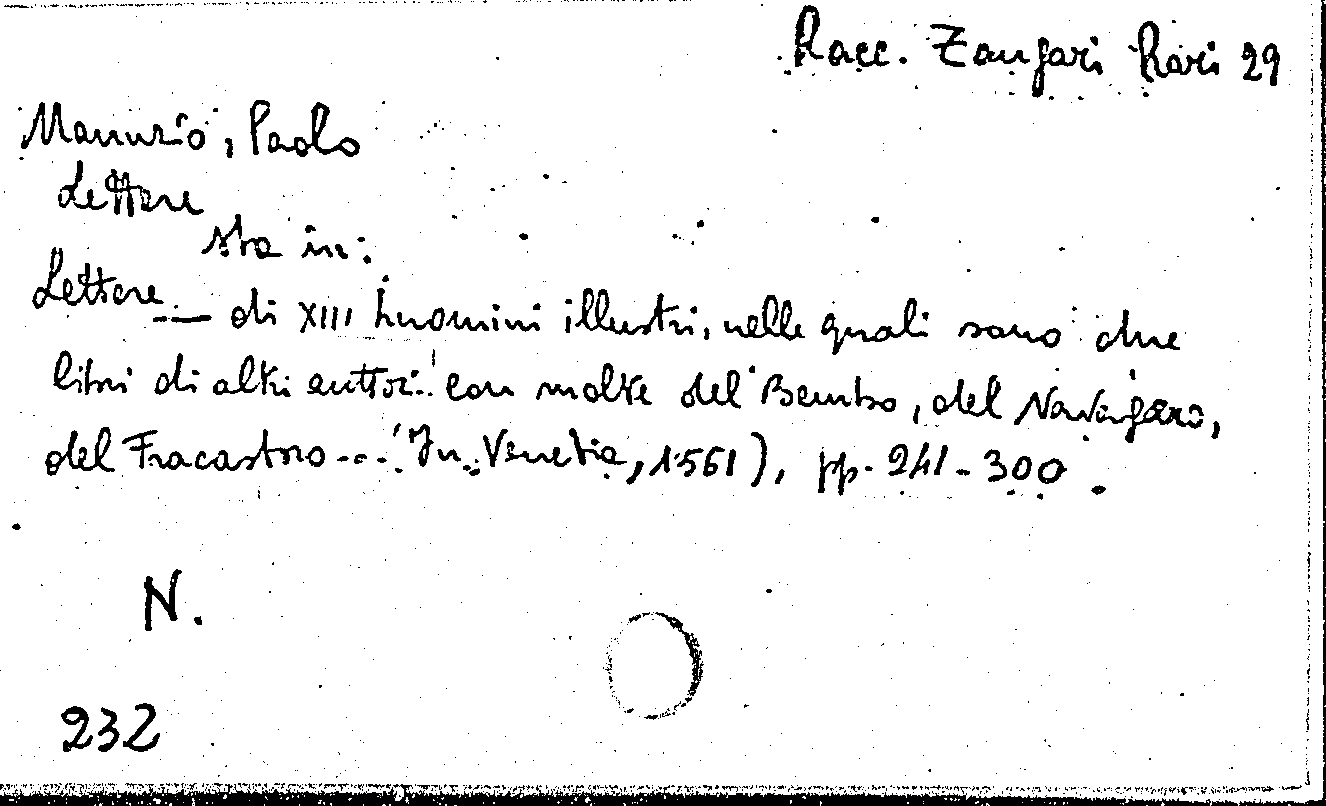 Racc. Zangari Rari 29
Manuzio, Paolo
Lettere
sta in:
Lettere __ di XIII huomini illustri, nelle quali sono due
libri di altri auttori. con molte del Bembo, del Navagero,
del Fracastoro... (In Venetia, 1561), pp. 241-300.
N.
232